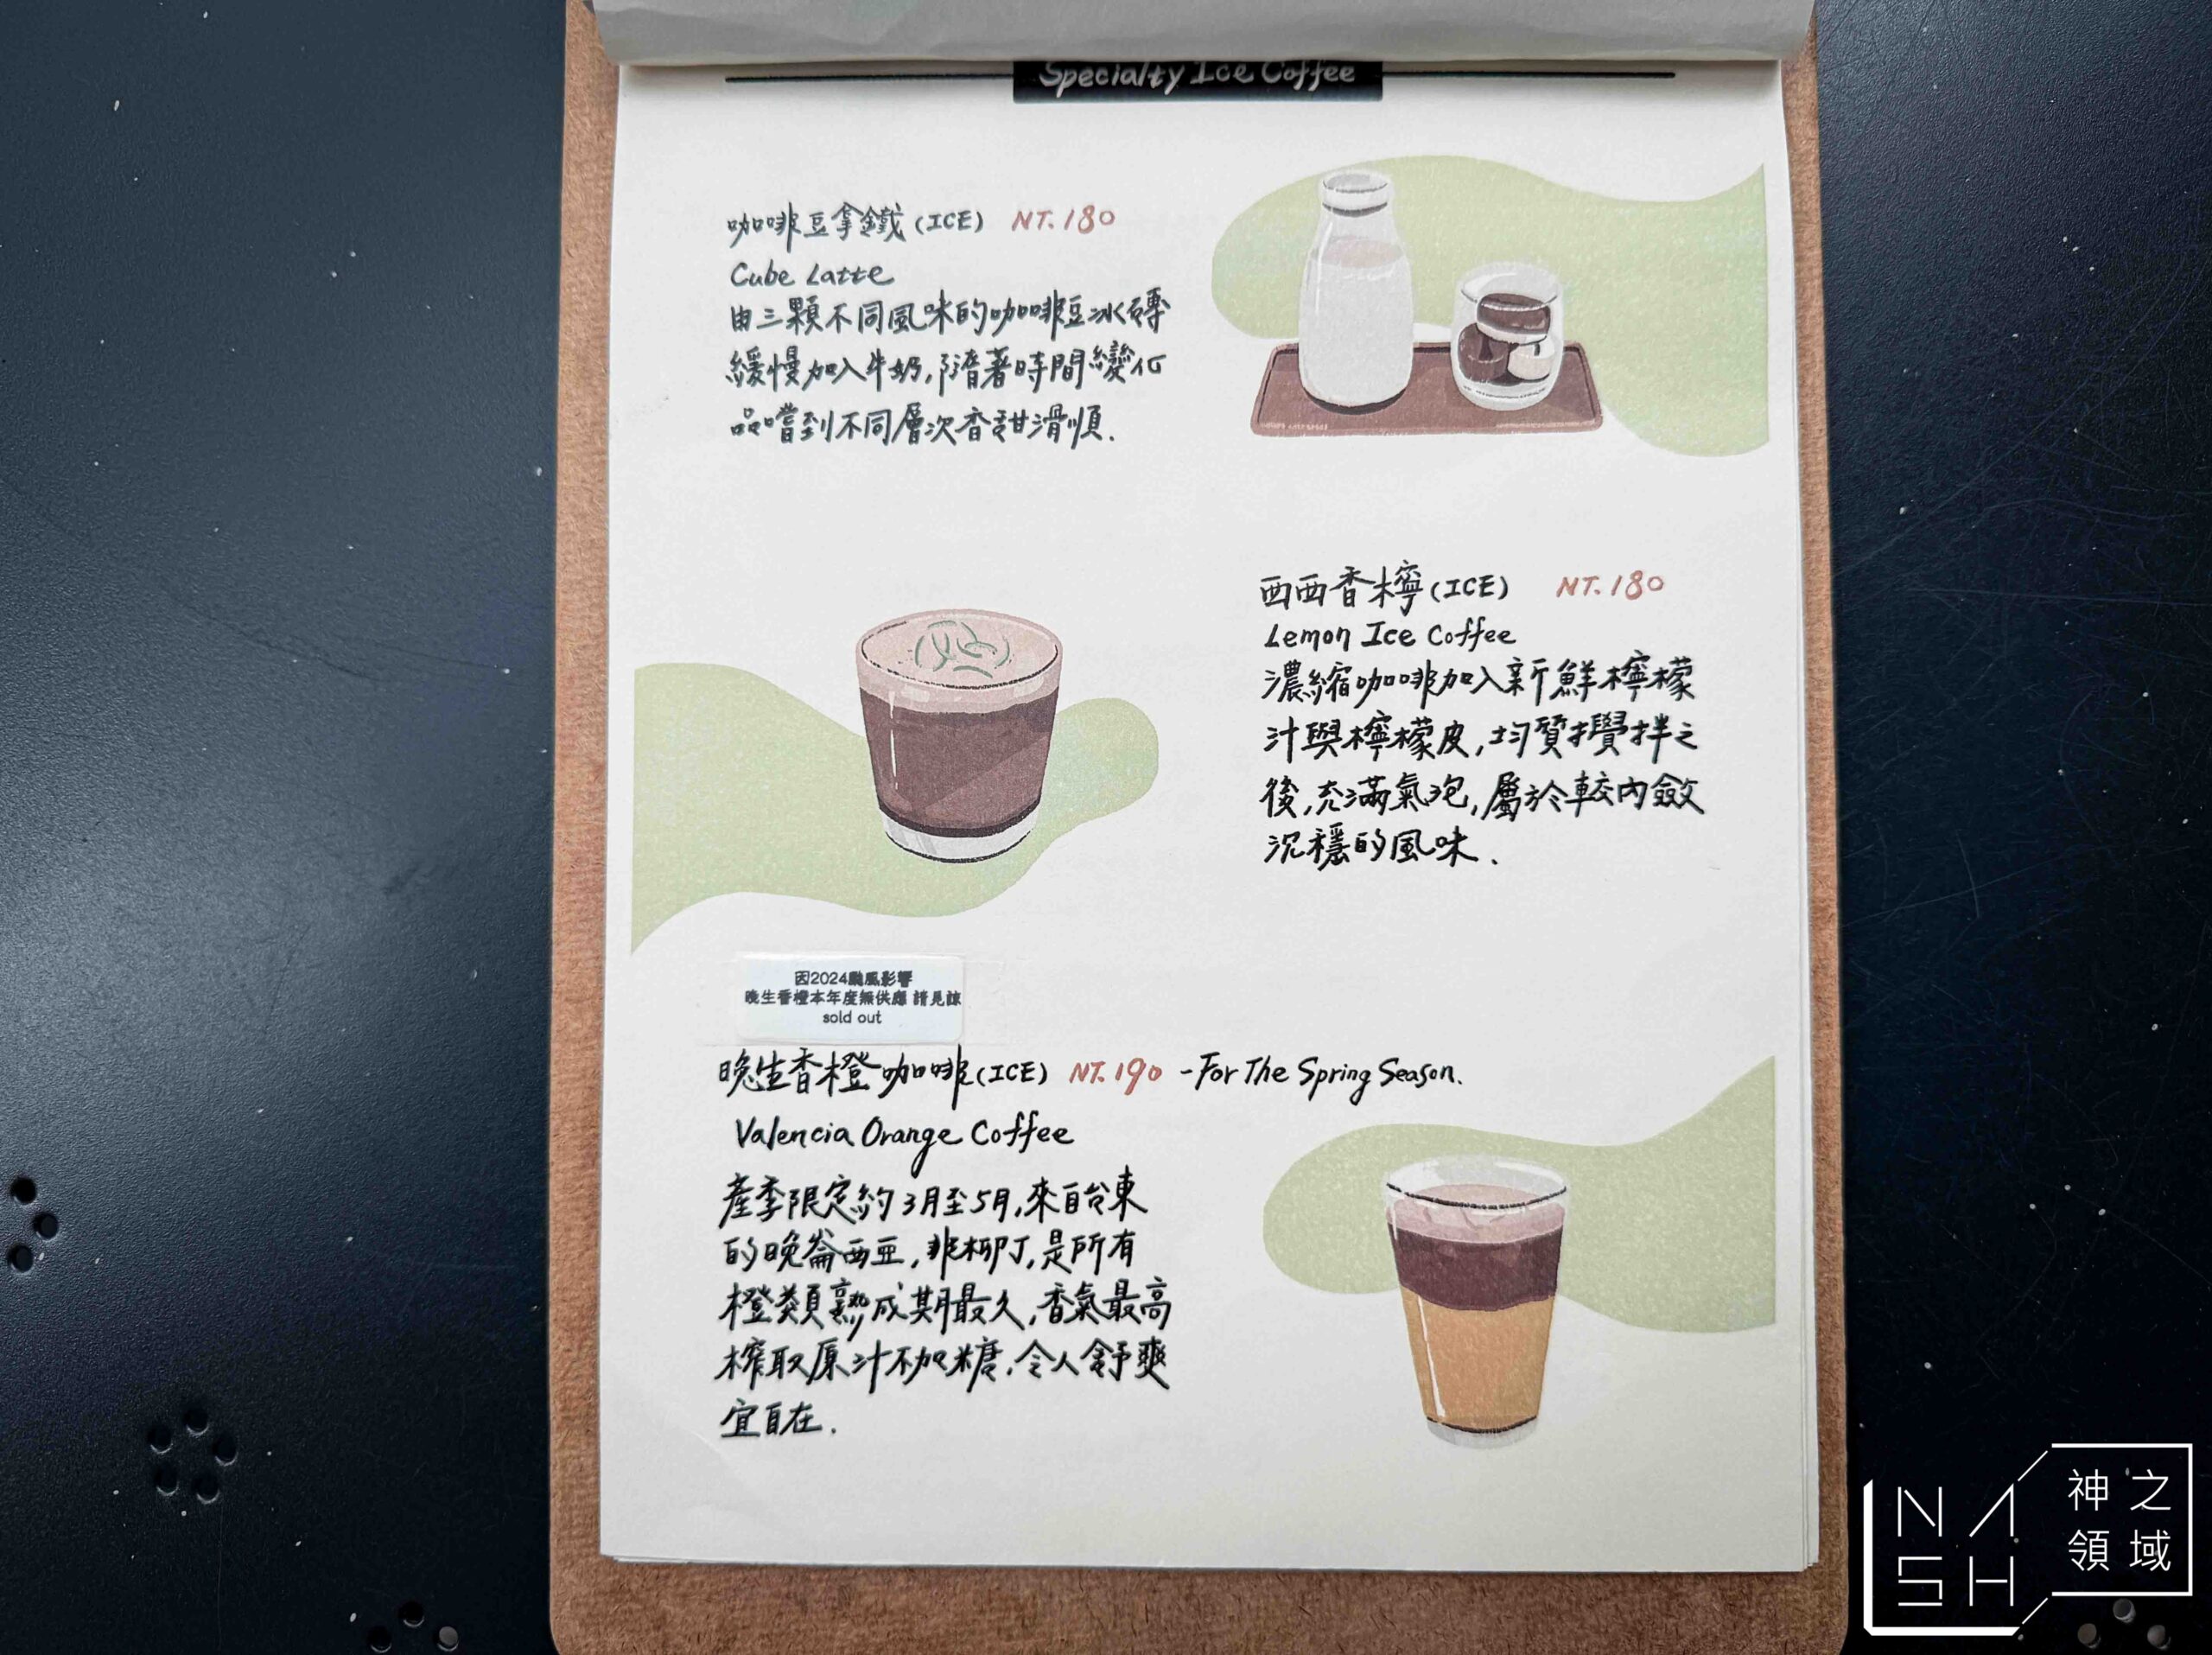 Specialty Ice Coffee
咖啡豆拿鐵(ICE) NT.180
Cube Latte
由三顆不同風味的咖啡豆冰磚
緩慢加入牛奶,隨著時間變化
品嚐到不同層次香甜滑順.
西西香檸(ICE) NT.180
Lemon Ice Coffee
濃縮咖啡加入新鮮檸檬
汁與檸檬皮,均質攪拌之
後,充滿氣泡,屬於較內斂
沉穩的風味.
因2024颱風影響
晚生香橙本年度無供應 請見諒
sold out
晚生香橙咖啡(ICE) NT.190 -For The Spring Season.
Valencia Orange Coffee
產季限定約3月至5月,來自台東
的晚崙西亞,非柳丁,是所有
橙類熟成期最久,香氣最高
榨取原汁不加糖.令人舒爽
宜自在.
NASH
神之
領域